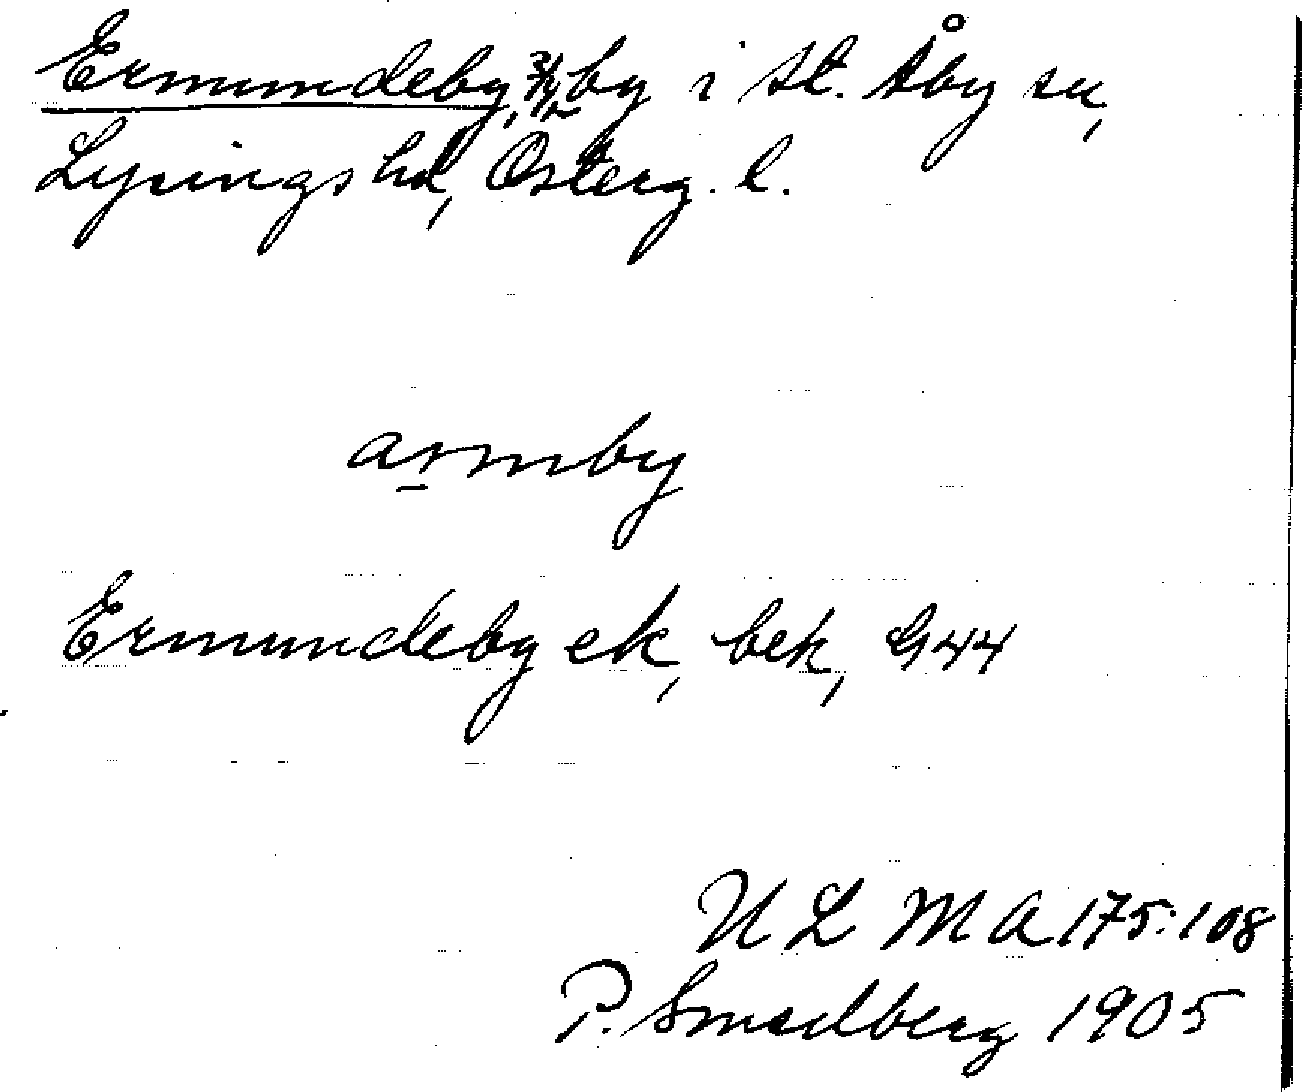 Ermundeby, 3/4 by i St. Åby sn,
Lysings hd, Österg. l.
armby
Ermundeby ek, bek, G44
ULMA 175:108
P. Smedberg 1905